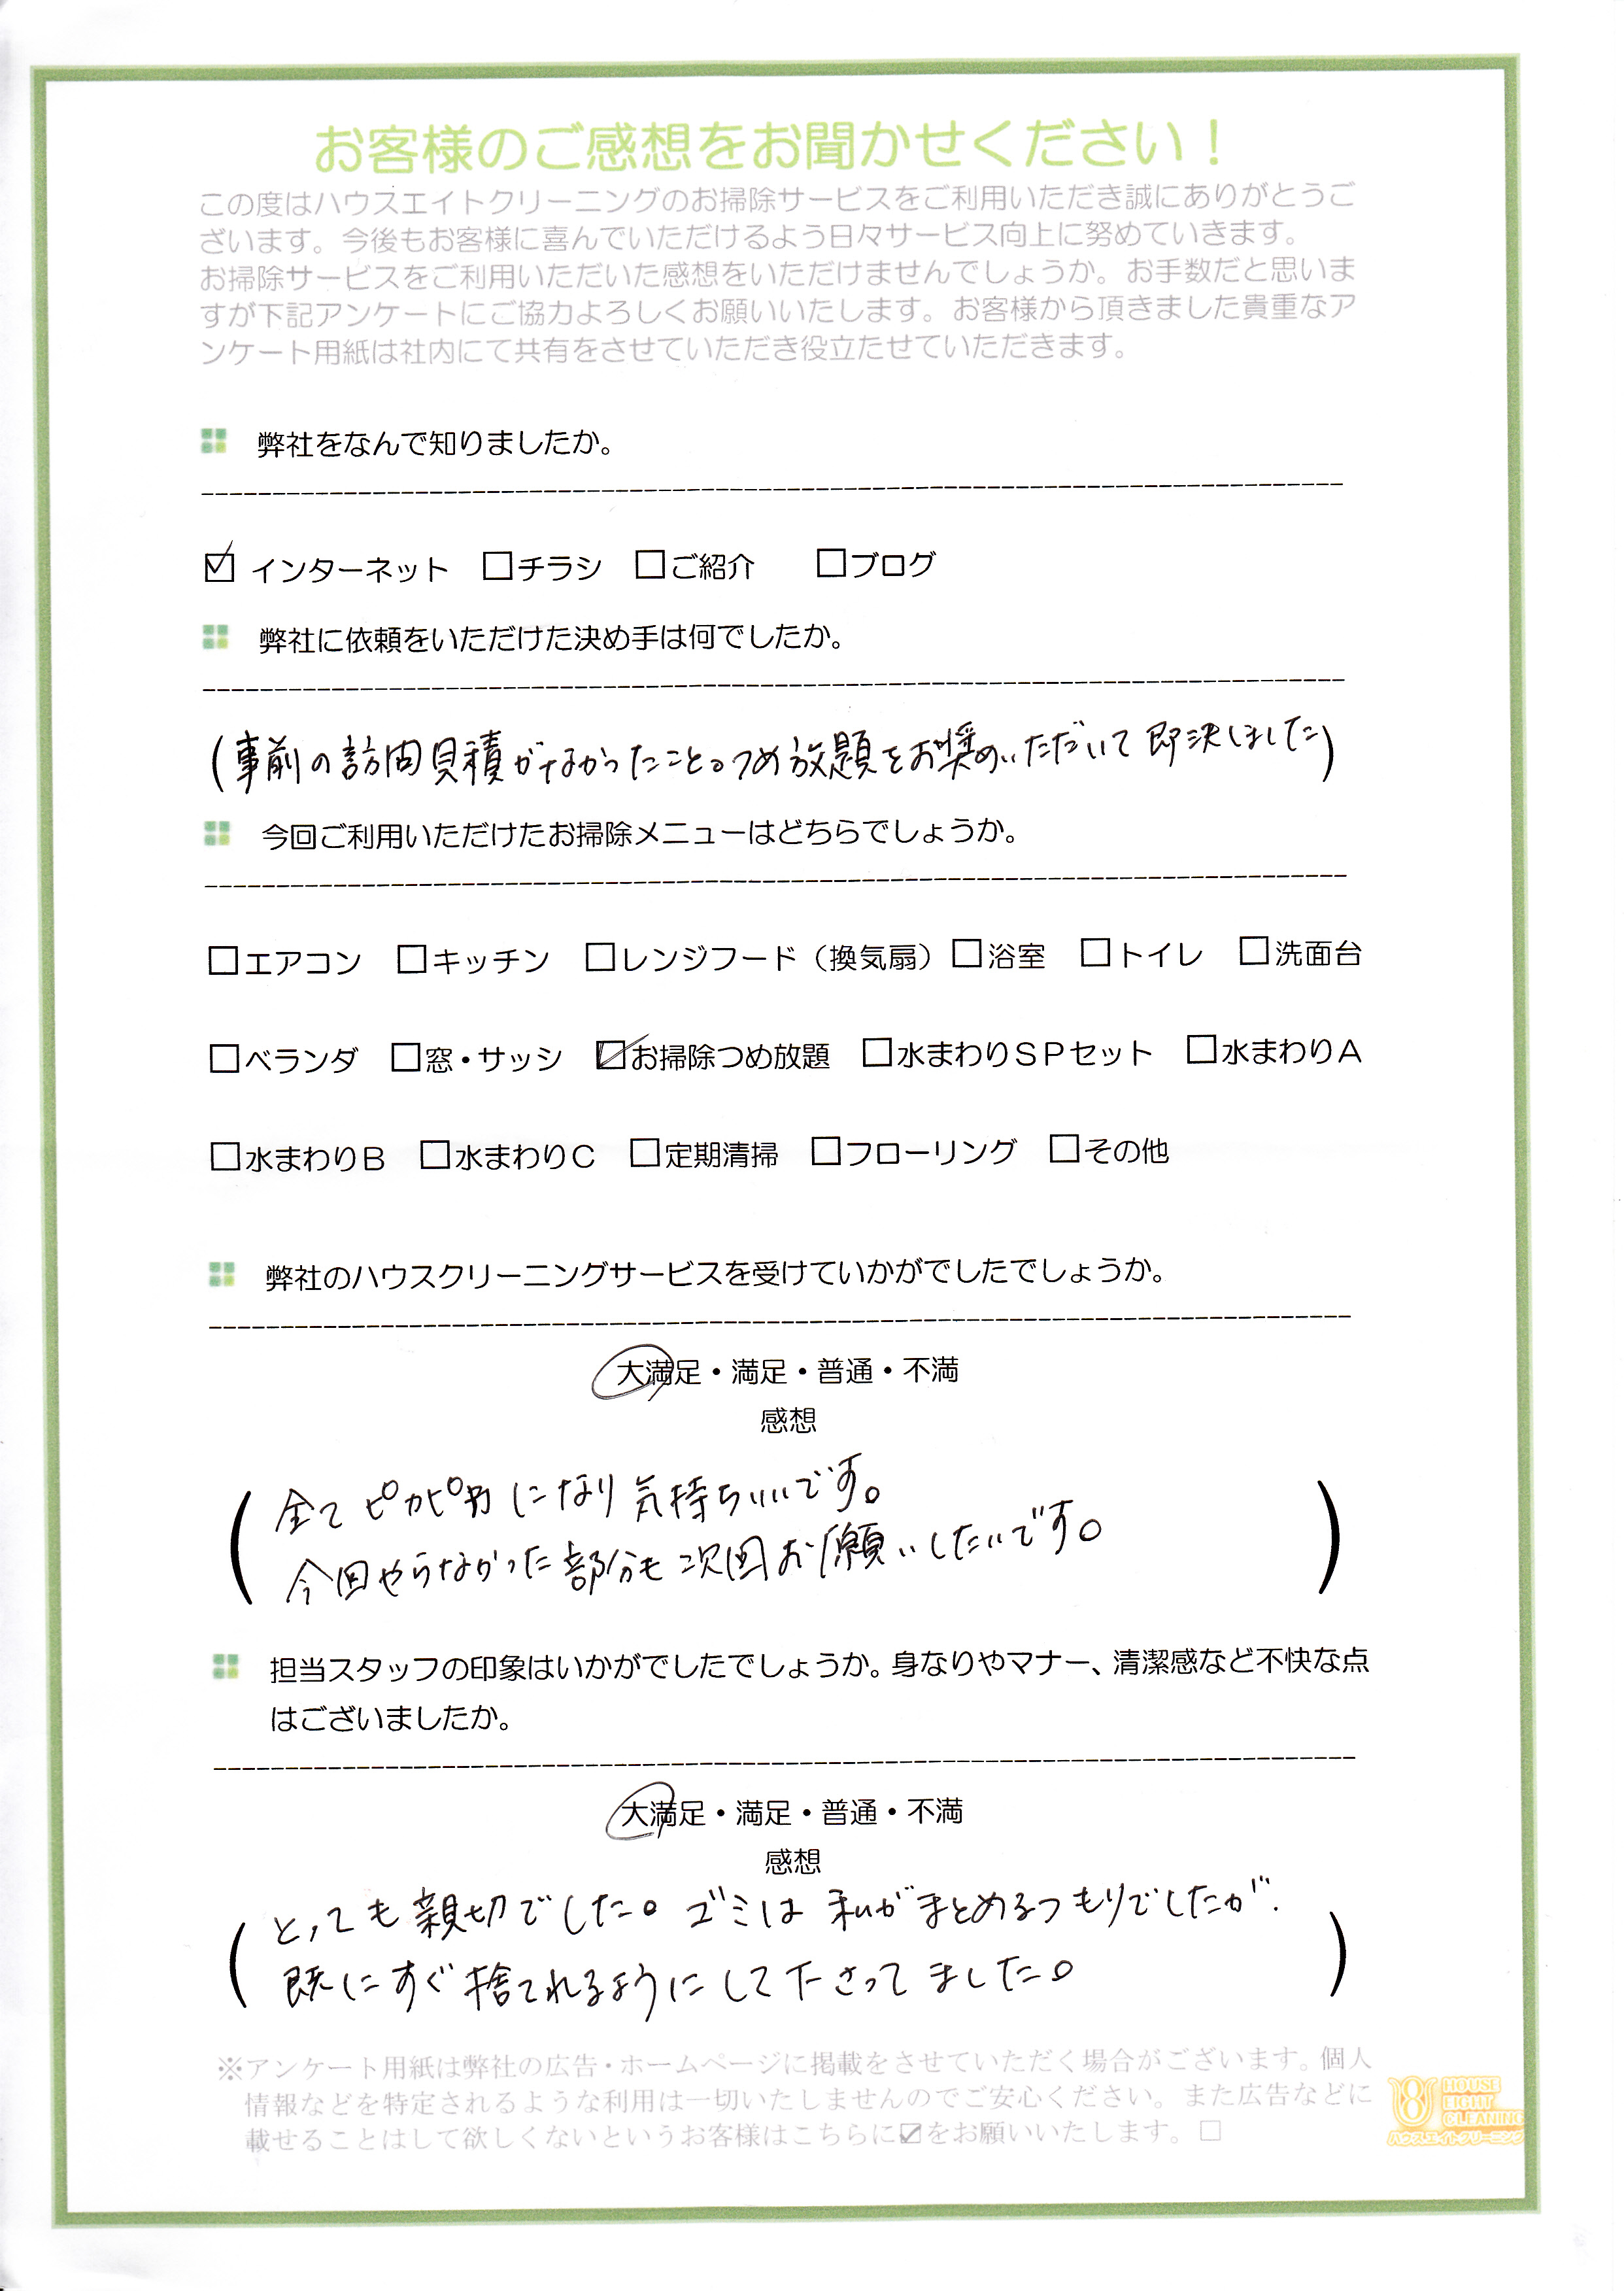 お客様のご感想をお聞かせください！
この度はハウスエイトクリーニングのお掃除サービスをご利用いただき誠にありがとうご
ざいます。今後もお客様に喜んでいただけるよう日々サービス向上に努めていきます。
お掃除サービスをご利用いただいた感想をいただけませんでしょうか。お手数だと思いま
すが下記アンケートにご協力よろしくお願いいたします。お客様から頂きました貴重なア
ンケート用紙は社内にて共有をさせていただき役立たせていただきます。
弊社をなんで知りましたか。
☑ インターネット □チラシ □ご紹介 □ブログ
弊社に依頼をいただけた決め手は何でしたか。
(事前の訪問見積がなかったこと。つめ放題をお奨めいただいて即決しました)
今回ご利用いただけたお掃除メニューはどちらでしょうか。
□エアコン □キッチン □レンジフード（換気扇）□浴室 □トイレ □洗面台
□ベランダ □窓・サッシ ☑お掃除つめ放題 □水まわりＳＰセット □水まわりＡ
□水まわりＢ □水まわりＣ □定期清掃 □フローリング □その他
弊社のハウスクリーニングサービスを受けていかがでしたでしょうか。
大満足・満足・普通・不満
感想
(全てピカピカになり気持ちいいです。
今回やらなかった部分も次回お願いしたいです。)
担当スタッフの印象はいかがでしたでしょうか。身なりやマナー、清潔感など不快な点
はございましたか。
大満足・満足・普通・不満
感想
(とっても親切でした。ゴミは私がまとめるつもりでしたが、
既にすぐ捨てれるようにして下さってました。)
※アンケート用紙は弊社の広告・ホームページに掲載をさせていただく場合がございます。個人
情報などを特定されるような利用は一切いたしませんのでご安心ください。また広告などに
載せることはして欲しくないというお客様はこちらに☑をお願いいたします。□
HOUSE
EIGHT
CLEANING
ハウスエイトクリーニング